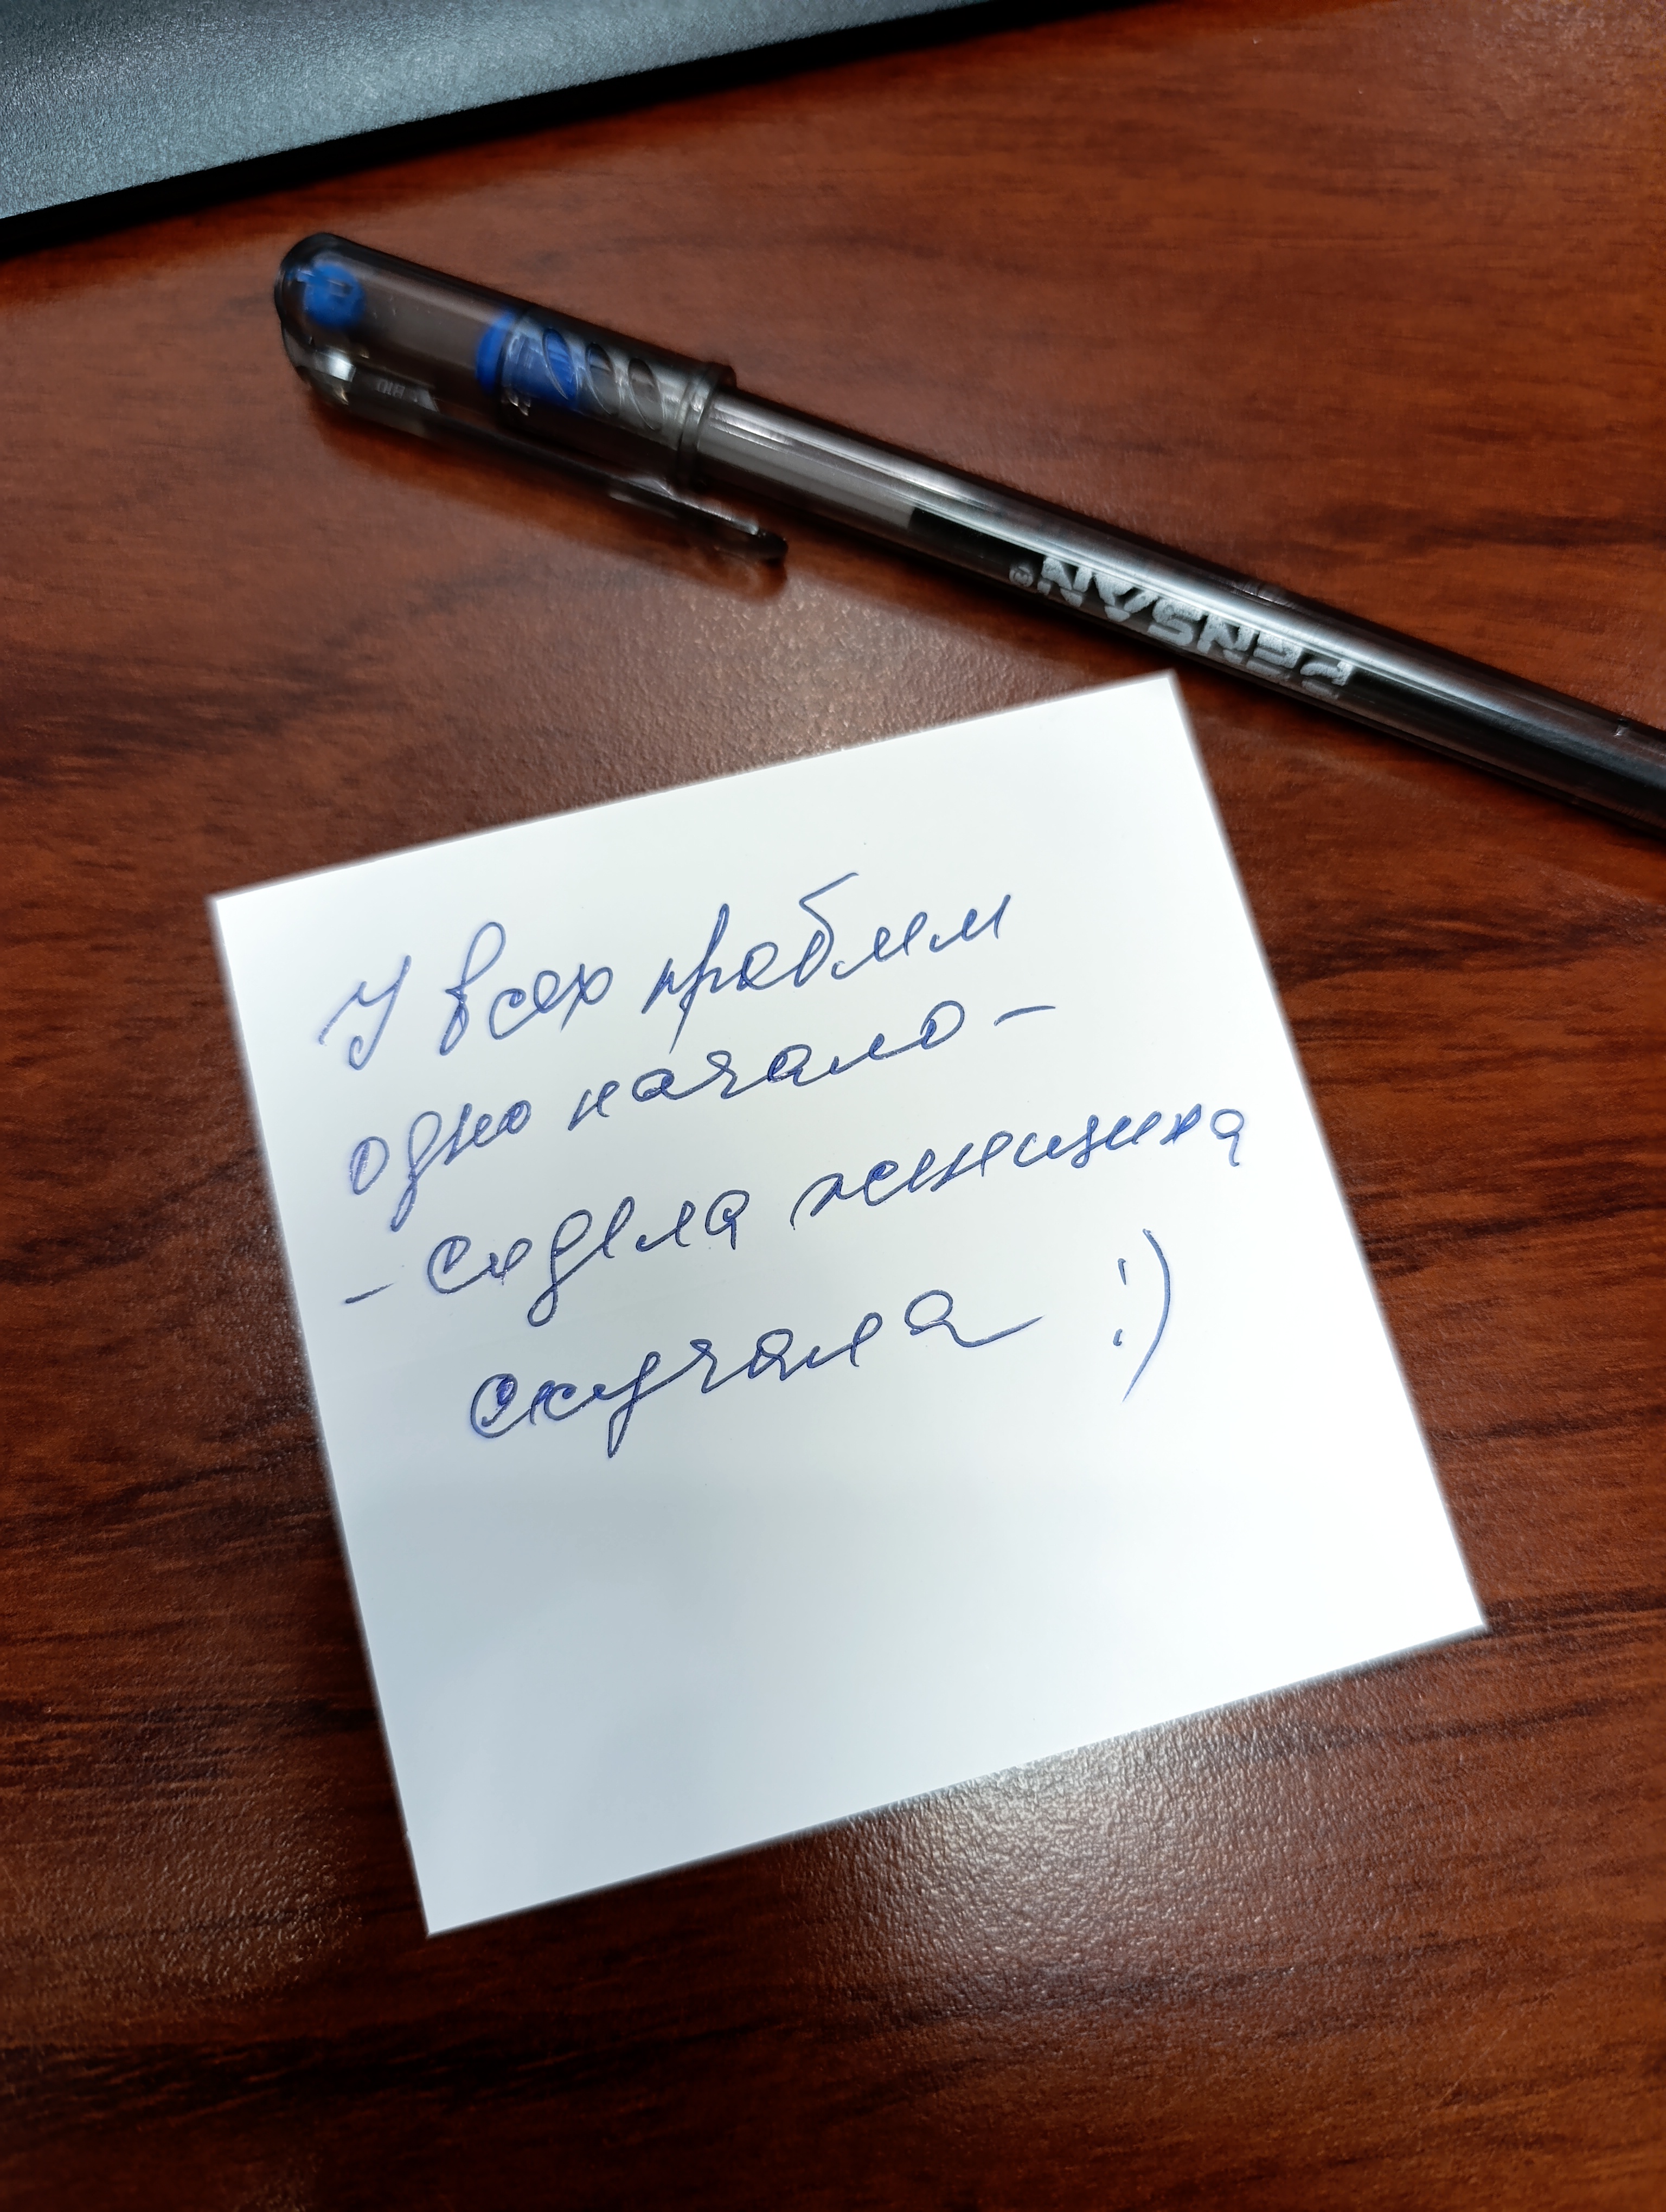 PENSAN®
У всех проблем
одно начало -
- сидела женщина
скучала :)